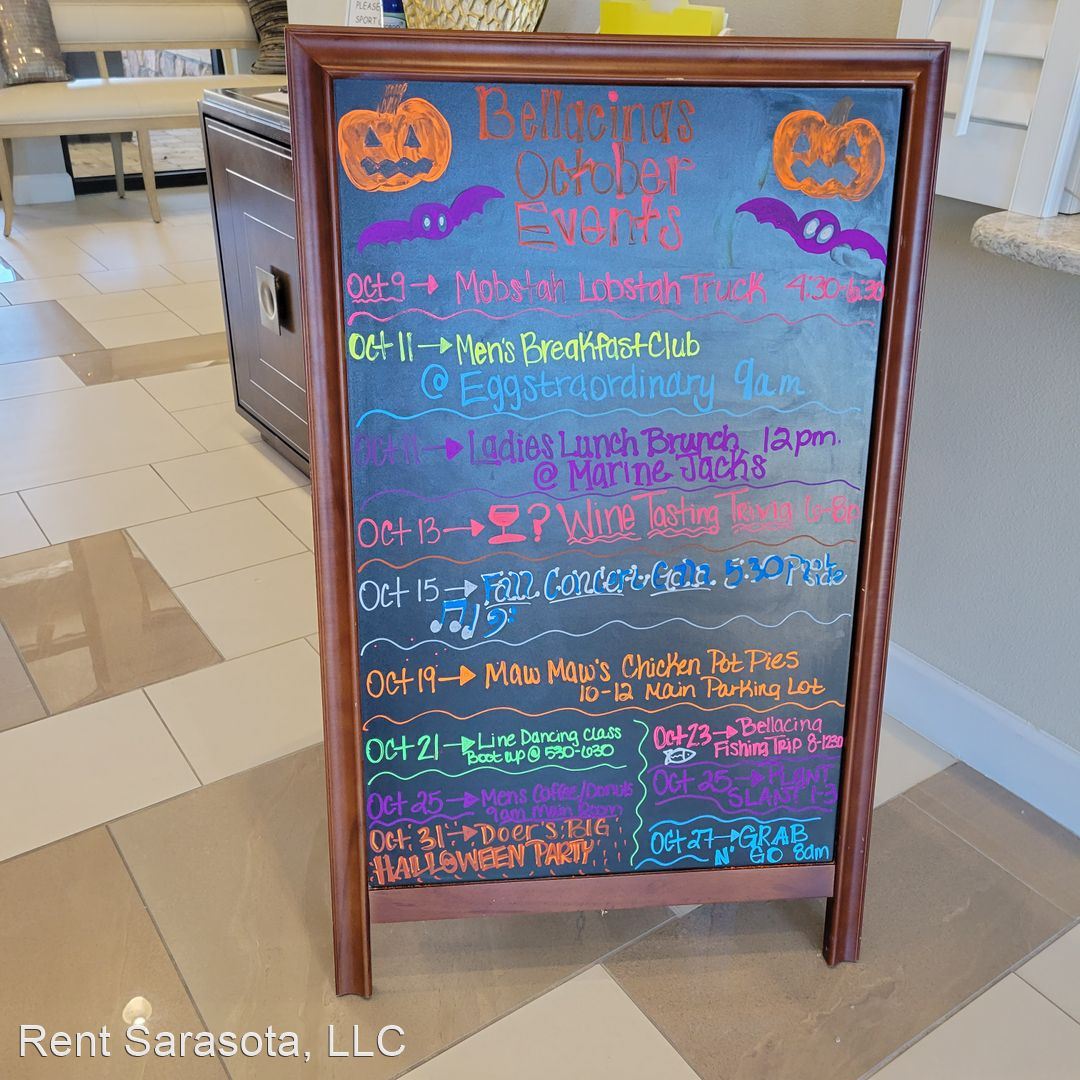 PLEASE
SPORT
Bellacinas
October
Events
Oct 9 → Mobstah Lobstah Truck 4:30-6:30
Oct 11 → Men's Breakfast Club
@ Eggstraordinary 9am
Oct 11 → Ladies Lunch Brunch 12pm.
@ Marine Jacks
Oct 13 → ? Wine Tasting Trivia 6-8p
Oct 15 → Fall Concert Gala 5:30
Oct 19 → Maw Maw's Chicken Pot Pies
10-12 Main Parking Lot
Oct 21 → Line Dancing class
Boot up @ 530-630
Oct 23 → Bellacina
Fishing Trip 8-1230
Oct 25 → Mens Coffee/Donuts
9am Main Room
Oct 25 → PLANT
SLANT 1-3
Oct 31 → Doer's BIG
HALLOWEEN PARTY
Oct 27 → GRAB
N' GO 8am
Rent Sarasota, LLC